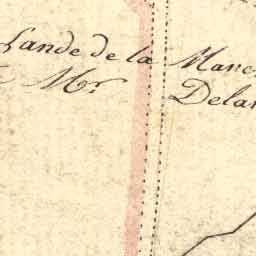 Lande de la Manc
Mr Dela